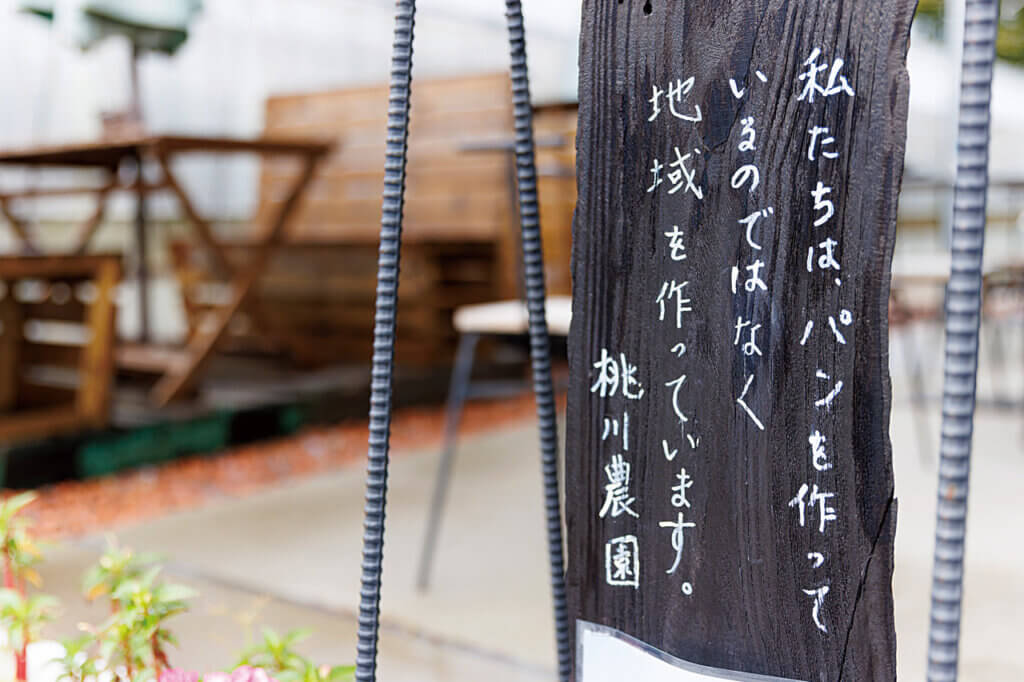 私たちは、パンを作って
いるのではなく
地域を作っています。
桃川農園